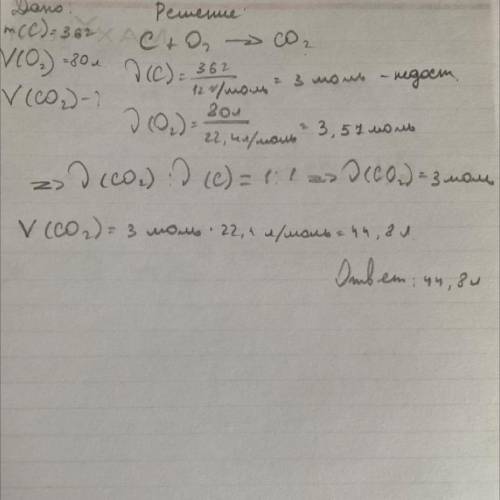 Дано: Решение:
m(C)=36г
C + O₂ → CO₂
V(O₂)=80л
V(CO₂)-?
ν(C)= 36г / 12 г/моль = 3 моль - недост.
ν(O₂)= 80л / 22,4л/моль = 3,57 моль
=> ν(CO₂) : ν(C) = 1:1 => ν(CO₂)=3 моль
V(CO₂)= 3 моль · 22,4 л/моль = 44,8 л
Ответ: 44,8л